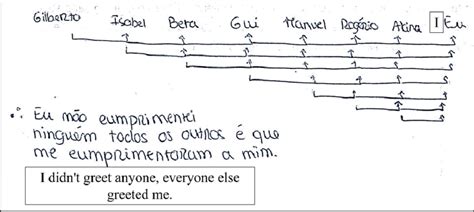 Gilberto Isabel Beta Gui Manuel Rogério Atina I Eu
∴ Eu não cumprimentei
ninguém todos os outros é que
me cumprimentaram a mim.
I didn't greet anyone, everyone else
greeted me.